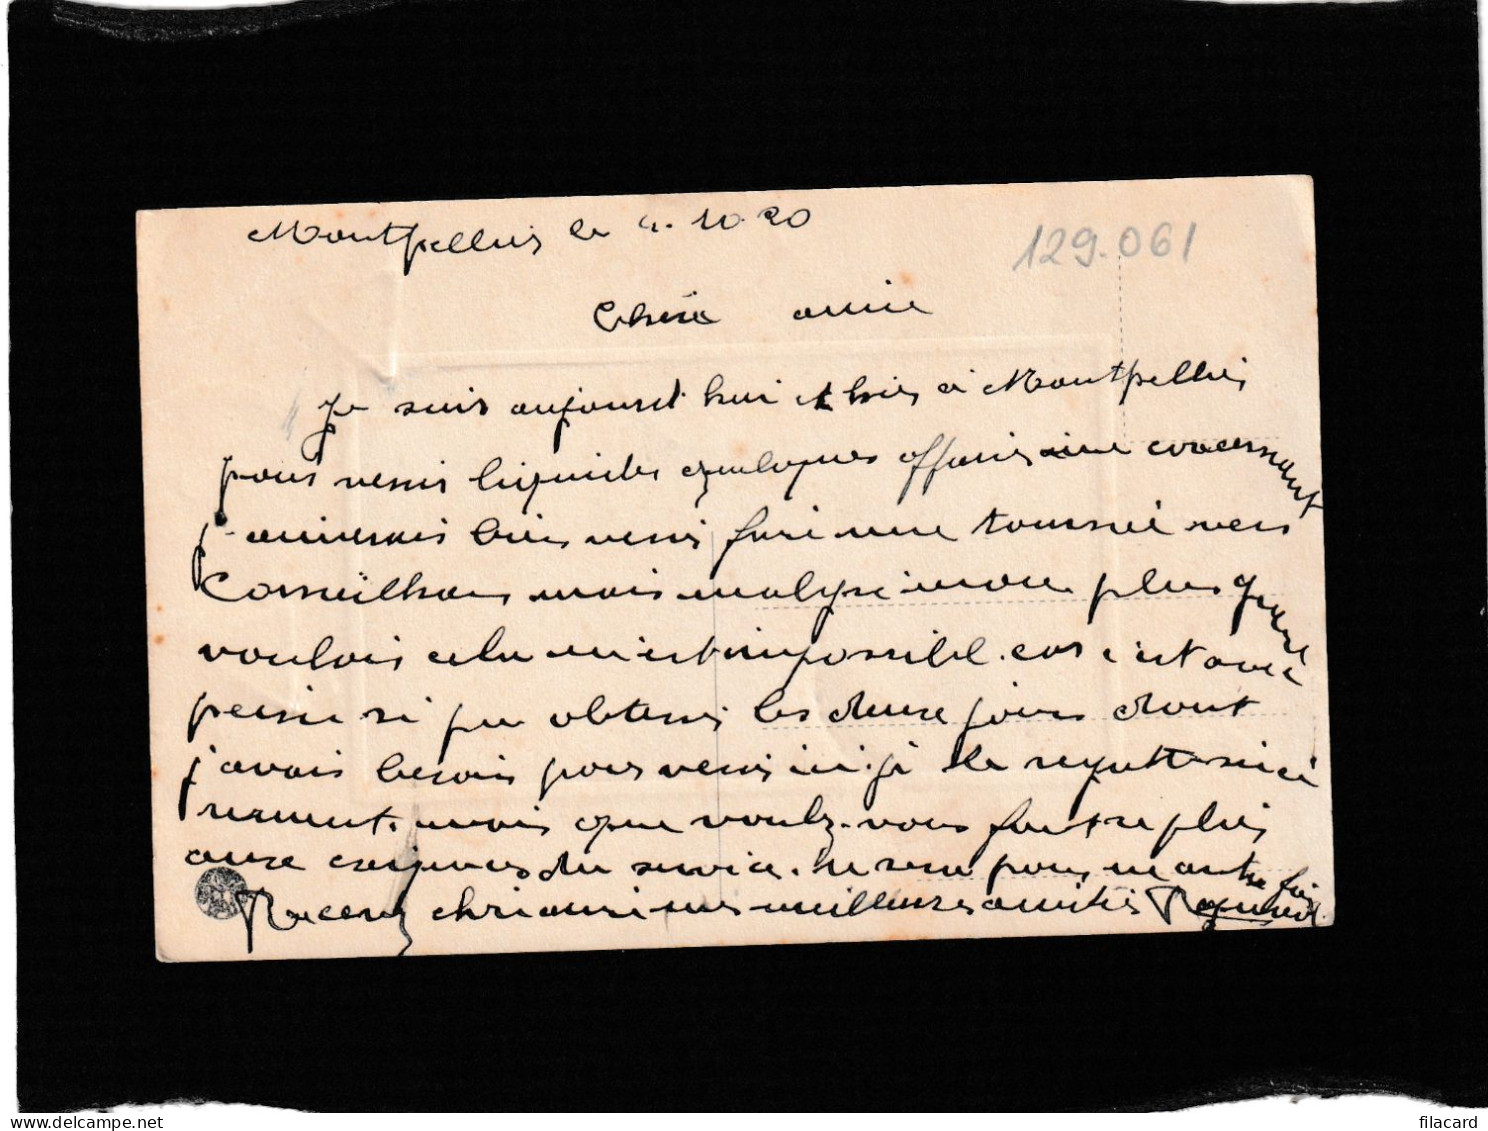 Montpellier le 4. 10. 20
129.061
Chère amie
Je suis aujourd'hui et hier à Montpellier
pour venir liquider quelques affaires me concernant
j'aimerais bien venir faire une tournée vers
Corneilhan mais malgré mon plus grand
vouloir cela m'est impossible. car c'est avec
peine si j'ai obtenir les deux jours dont
j'avais besoin pour venir ici. je le regrette sincè
rement. mais que voulez-vous faut se plier
aux exigences du service. ce sera pour une autre fois
Recevez chère amie mes meilleures amitiés
www.delcampe.net
filacard